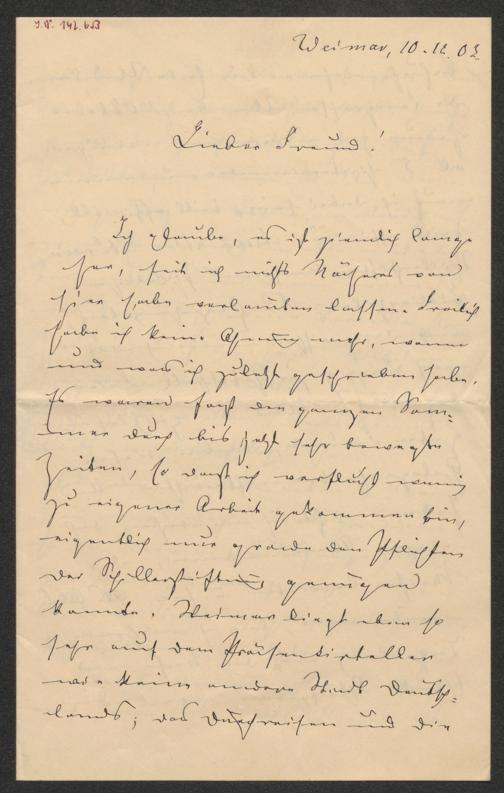 J.N. 142.653
Weimar, 10.12.03
Lieber Freund!
Ich glaube, es ist ziemlich lange
her, seit ich nichts Näheres von
hier habe verlauten lassen. Freilich
habe ich keine Ahnung mehr, wann
und was ich zuletzt geschrieben habe.
Es waren fast den ganzen Som-
mer durch bis jetzt sehr bewegte
Zeiten, so dass ich verflucht wenig
zu eigener Arbeit gekommen bin,
eigentlich nur grade den Pflichten
der Schillerstiftung genügen
konnte. Weimar liegt eben so
sehr auf dem Präsentirteller
wie keine andere Stadt Deutsch-
lands; das Durchreisen und die